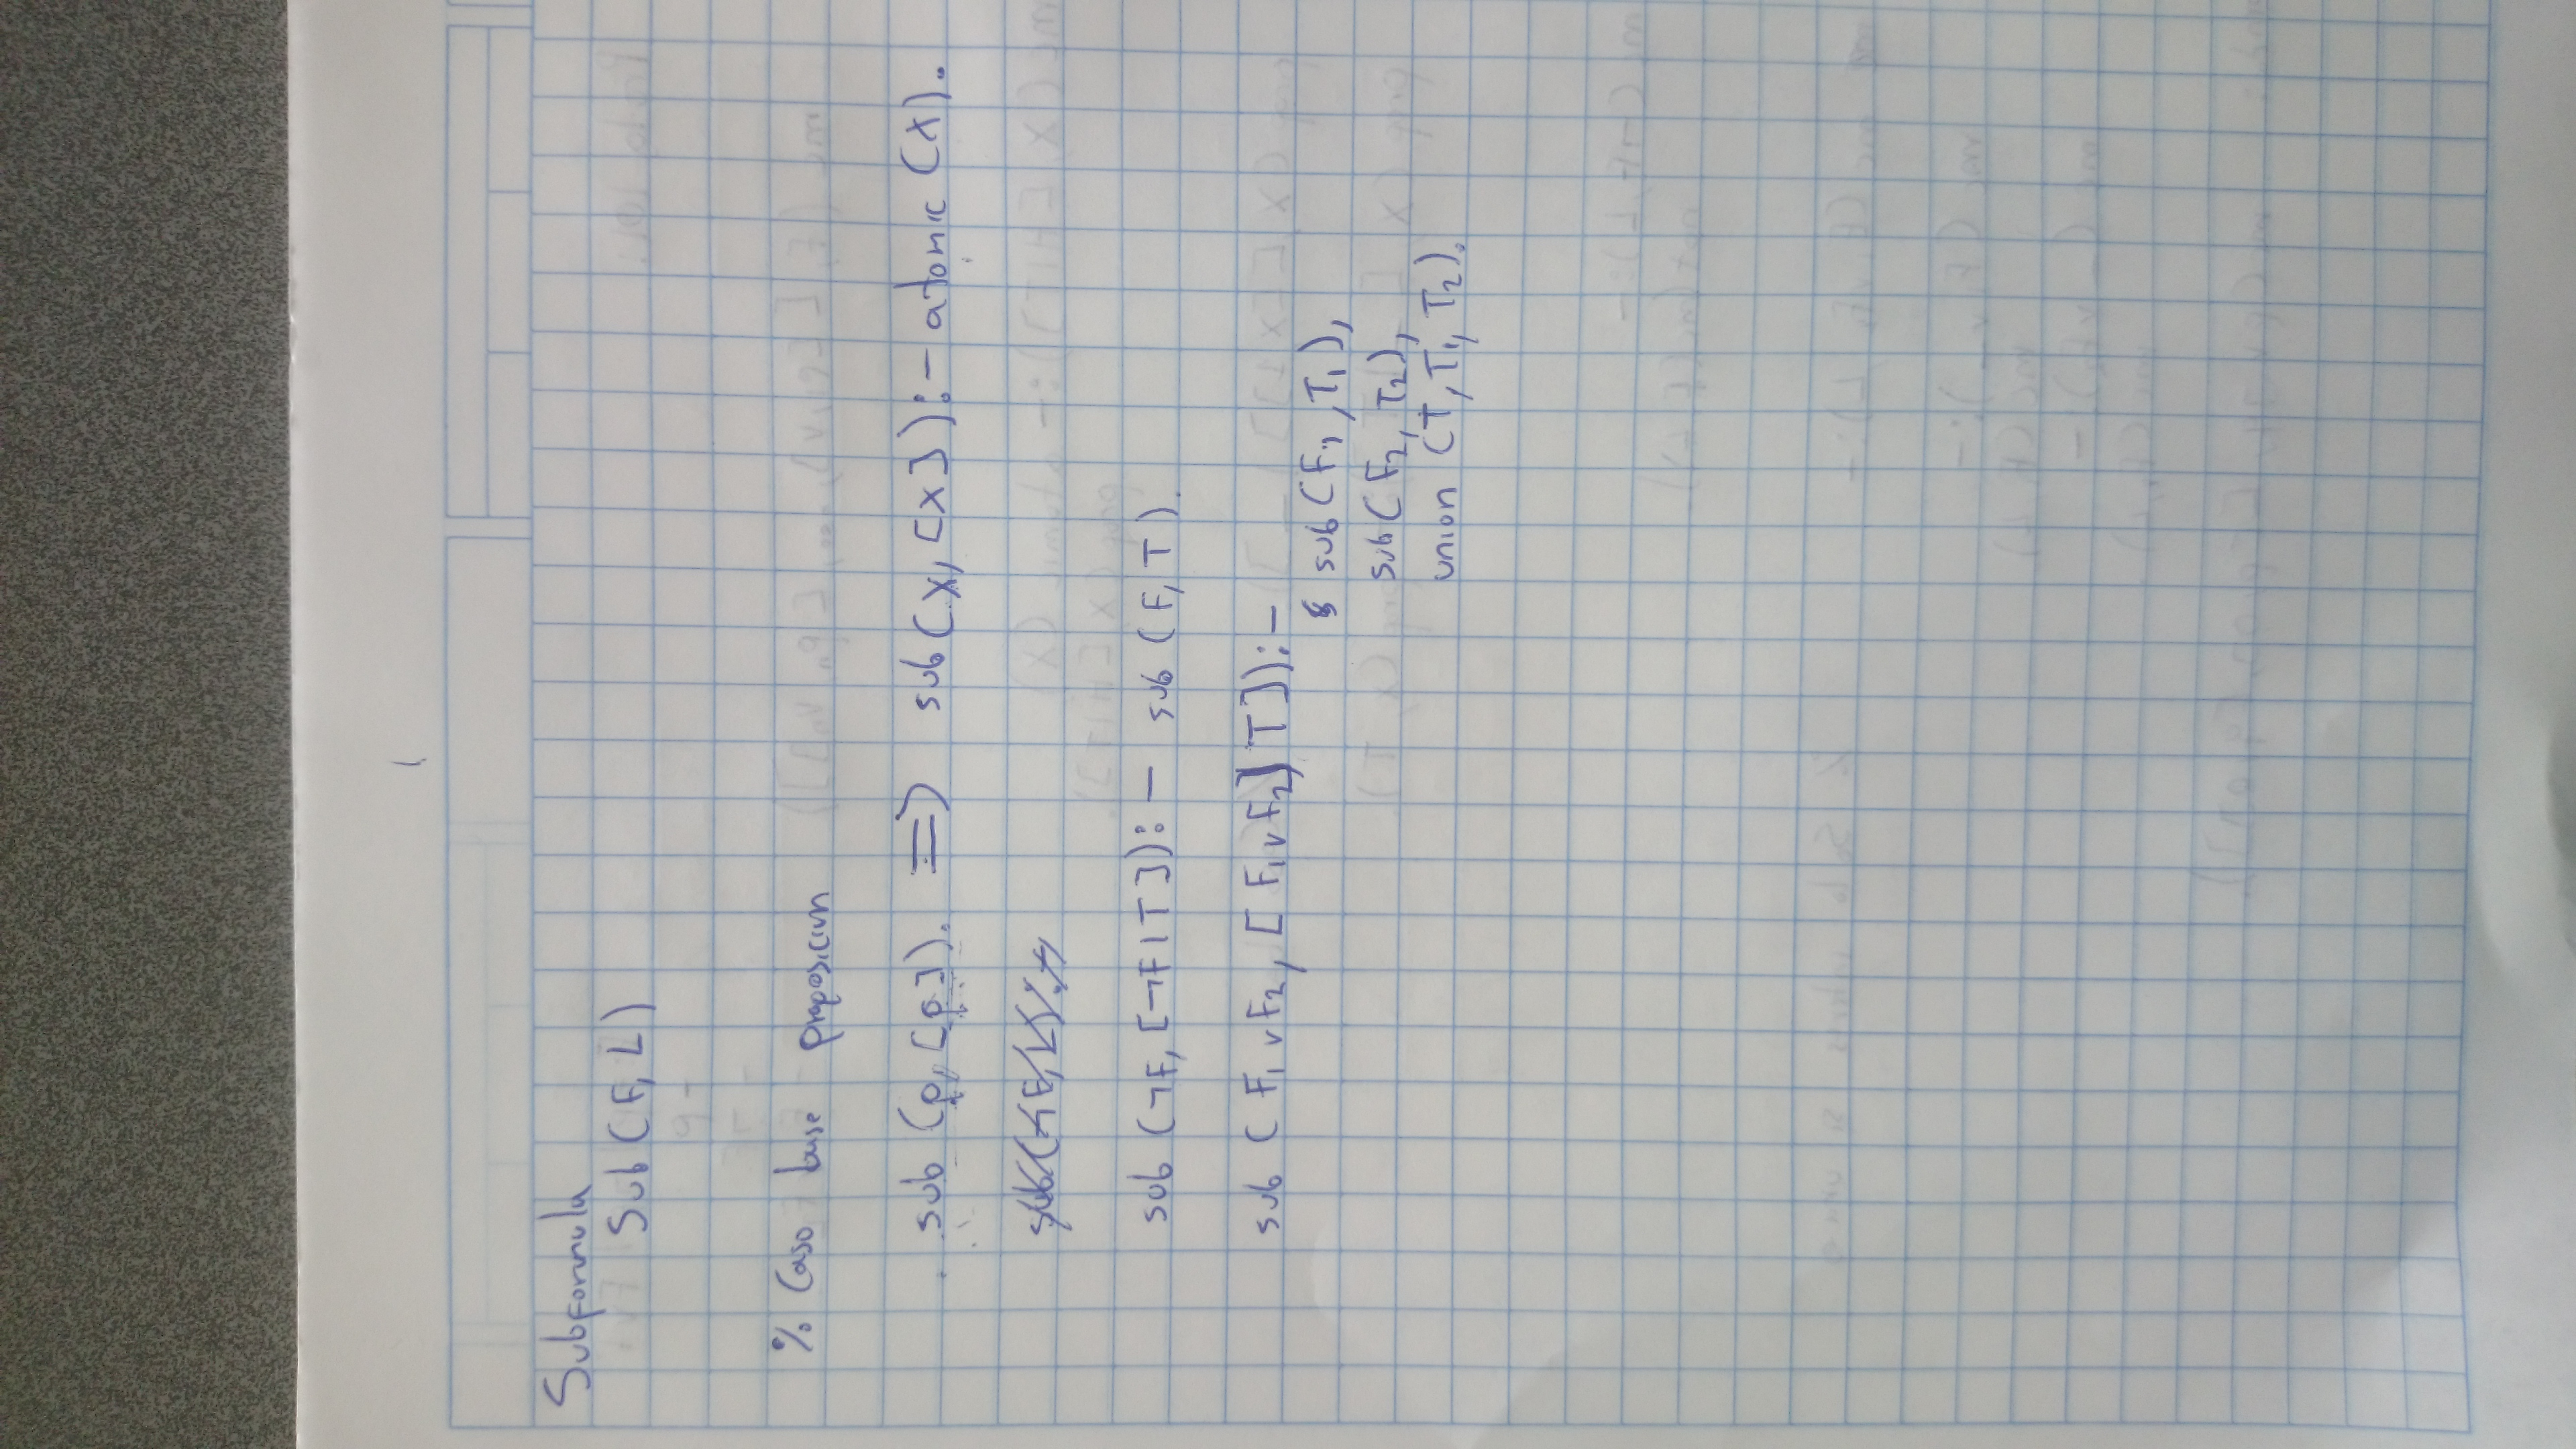 Subformula
Sub(F, L)
% Caso base proposicion
sub (p, [p]). => sub(x, [x]):- atomic (x).
sub (¬F, [¬F|T]):- sub (F, T).
sub ( F₁ ∨ F₂, [ F₁ ∨ F₂| T]):-
sub(F₁, T₁),
sub( F₂, T₂),
union (T, T₁, T₂).